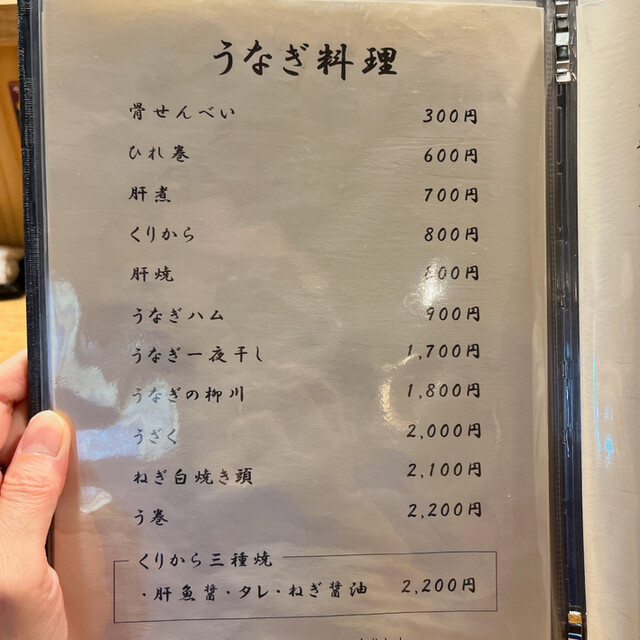 うなぎ料理
骨せんべい 300円
ひれ巻 600円
肝煮 700円
くりから 800円
肝焼 800円
うなぎハム 900円
うなぎ一夜干し 1,700円
うなぎの柳川 1,800円
うざく 2,000円
ねぎ白焼き頭 2,100円
う巻 2,200円
くりから三種焼
・肝魚醤・タレ・ねぎ醤油 2,200円